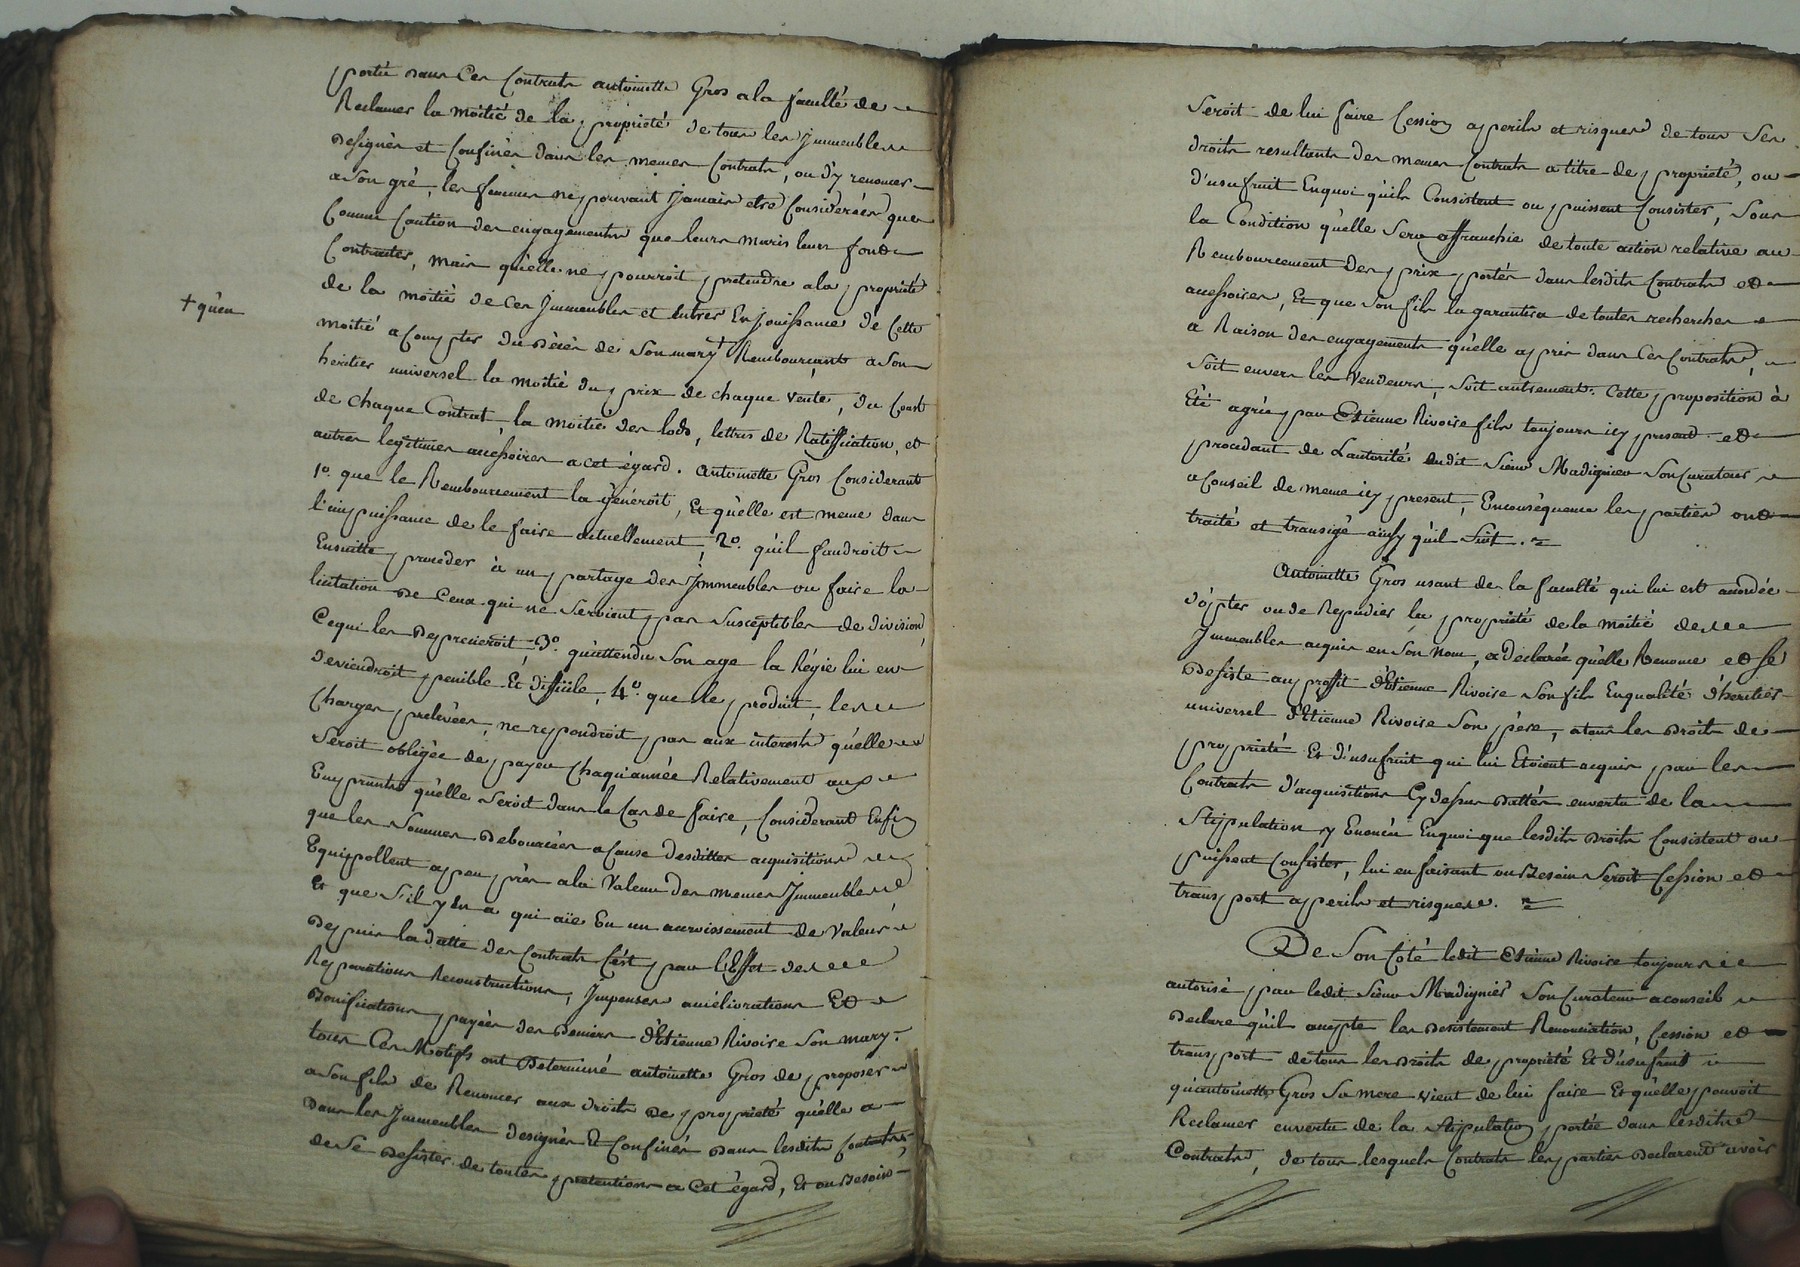 portée dans Ces Contrats antoinette Gros a la faculté de
Reclamer la moitié de la proprieté de tous les Jmmeubles
designés et Confinés dans les memes Contrats, ou d'y renoncer
a Son gré, les femmes ne pouvant Jamais etre Considerées que
Comme Caution des engagements que leurs maris leur font
Contracter, mais qu'elle ne pourroit pretendre a la proprieté
de la moitié de Ces Jmmeubles et Entrer En Jouissance de Cette
+ qu'en
moitié a Compter du Décès de Son mary + Remboursant a Son
heritier universel la moitié du prix de chaque vente, du Cout
de chaque Contrat, la moitié des lods, lettres de Ratiffication, et
autres legitimes accessoires a cet égard. antoinette Gros Considerant
1º. que le Remboursement la gèneroit, Et qu'elle est meme dans
l'impuissance de le faire actuellement; 2º. qu'il faudroit
Ensuitte proceder à un partage des Jmmeubles ou faire la
licitation de Ceux qui ne Seroient pas Susceptibles de division,
Ce qui les depreciroit, 3º. qu'attendu Son age la Régie lui en
deviendroit penible Et difficile, 4º. que le produit, les
Charges prelevées, ne repondroit pas aux interests qu'elle
Seroit obligée de payer Chaqu'année Relativement aux
Emprunts qu'elle Seroit dans le Cas de faire, Considerant Enfin
que les Sommes Deboursées a Cause desdittes acquisitions
Equipollent a peu près a la Valeur des memes Jmmeubles
Et que S'il y En a qui aïe Eu un accroissement de Valeur
Depuis la datte des Contrats C'est par l'Effet des
Reparations Reconstructions, Jmpenses améliorations Et
Bonifications payées des Deniers d'Etienne Rivoire Son mary.
tous Ces Motifs ont Determiné antoinette Gros de proposer
a Son fils de Renoncer aux droits de proprieté qu'elle a
Dans les Jmmeubles designés Et Confinés Dans lesdits Contrats,
de Se desister de toutes pretentions a Cet égard, Et au Besoin
Seroit de lui faire Cession a perils et risques de tous Ses
droits resultants des memes Contrats a titre de proprieté, ou
d'usufruit En quoi qu'ils Consistent ou puissent Consister, Sous
la Condition qu'elle Sera affranchie de toute action relative au
Remboursement des prix portés dans lesdits Contrats et
accessoires, Et que Son fils la garantira de toutes recherches
a Raison des engagements qu'elle a pris dans Ces Contrats,
Soit envers les Vendeurs, Soit autrement. Cette proposition à
Eté agréé par Etienne Rivoire fils toujours icy present et
procedant de L'autorité dudit Sieur Madignier Son Curateur
a Conseil de meme icy present, En consequence les parties ont
traité et transigé ainsy qu'il Suit.
Antoinette Gros usant de la faculté qui lui est accordée
d'opter ou de Repudier la proprieté de la moitié des
Jmmeubles acquis en Son Nom, a Declarée qu'elle Renonce et Se
Desiste au proffit d'Etienne Rivoire Son fils En qualité d'heritier
universel d'Etienne Rivoire Son père, a tous les Droits de
proprieté Et d'usufruit qui lui Etoient acquis par les
Contrats d'acquisitions Cy dessus Dattés en vertu de la
Stipulation y Enoncée En quoi que lesdits Droits Consistent ou
puissent Consister, lui en faisant ou Besoin Seroit Cession et
transport a perils et risques.
De Son Coté ledit Etienne Rivoire toujours
autorisé par ledit Sieur Madignier Son Curateur a conseil
Declare qu'il accepte les Desistement Renonciation, Cession et
transport de tous les Droits de proprieté Et d'usufruit
qu'antoinette Gros Sa mere vient de lui faire Et qu'elle pouvoit
Reclamer en vertu de la Stipulation portée dans lesdits
Contrats, de tous lesquels Contrats les parties Declarent avoir